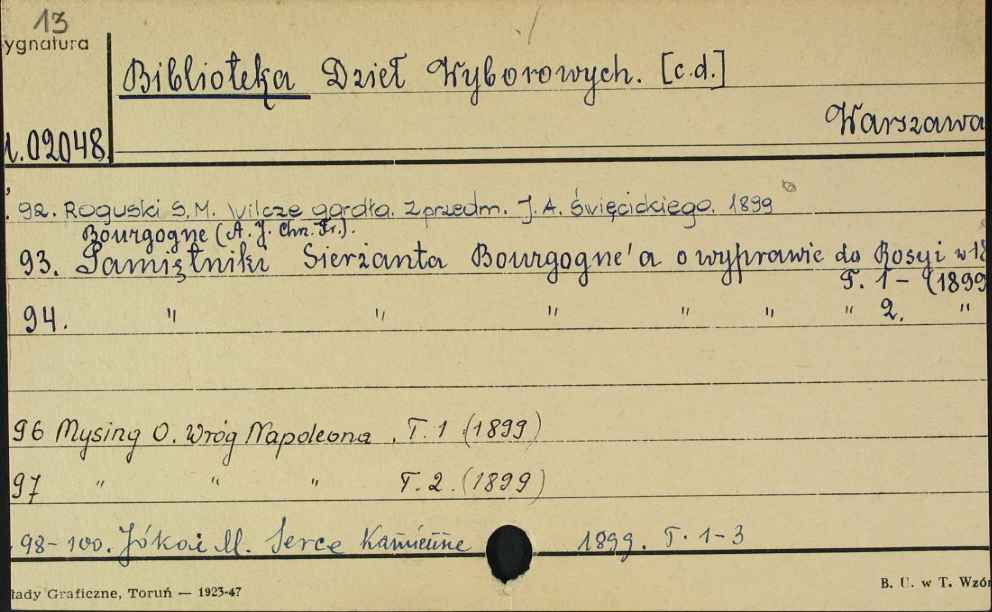 13
ygnatura
Biblioteka Dzieł Wyborowych. [c.d.]
Warszawa
1.02048
92. Roguski S.M. Wilcze gardła. Z przedm. J. A. Święcickiego. 1899
Bourgogne (A. J. Chr. Fr.).
93. Pamiętniki Sierżanta Bourgogne'a o wyprawie do Rosyi w 18
T. 1 – (1899
94. " " " " " " 2. "
96 Mysing O. Wróg Napoleona . T. 1 (1899)
97 " " " T. 2. (1899)
98-100. Jókai M. Serce Kamienne 1899. T. 1-3
łady Graficzne, Toruń — 1923-47
B. U. w T. Wzór